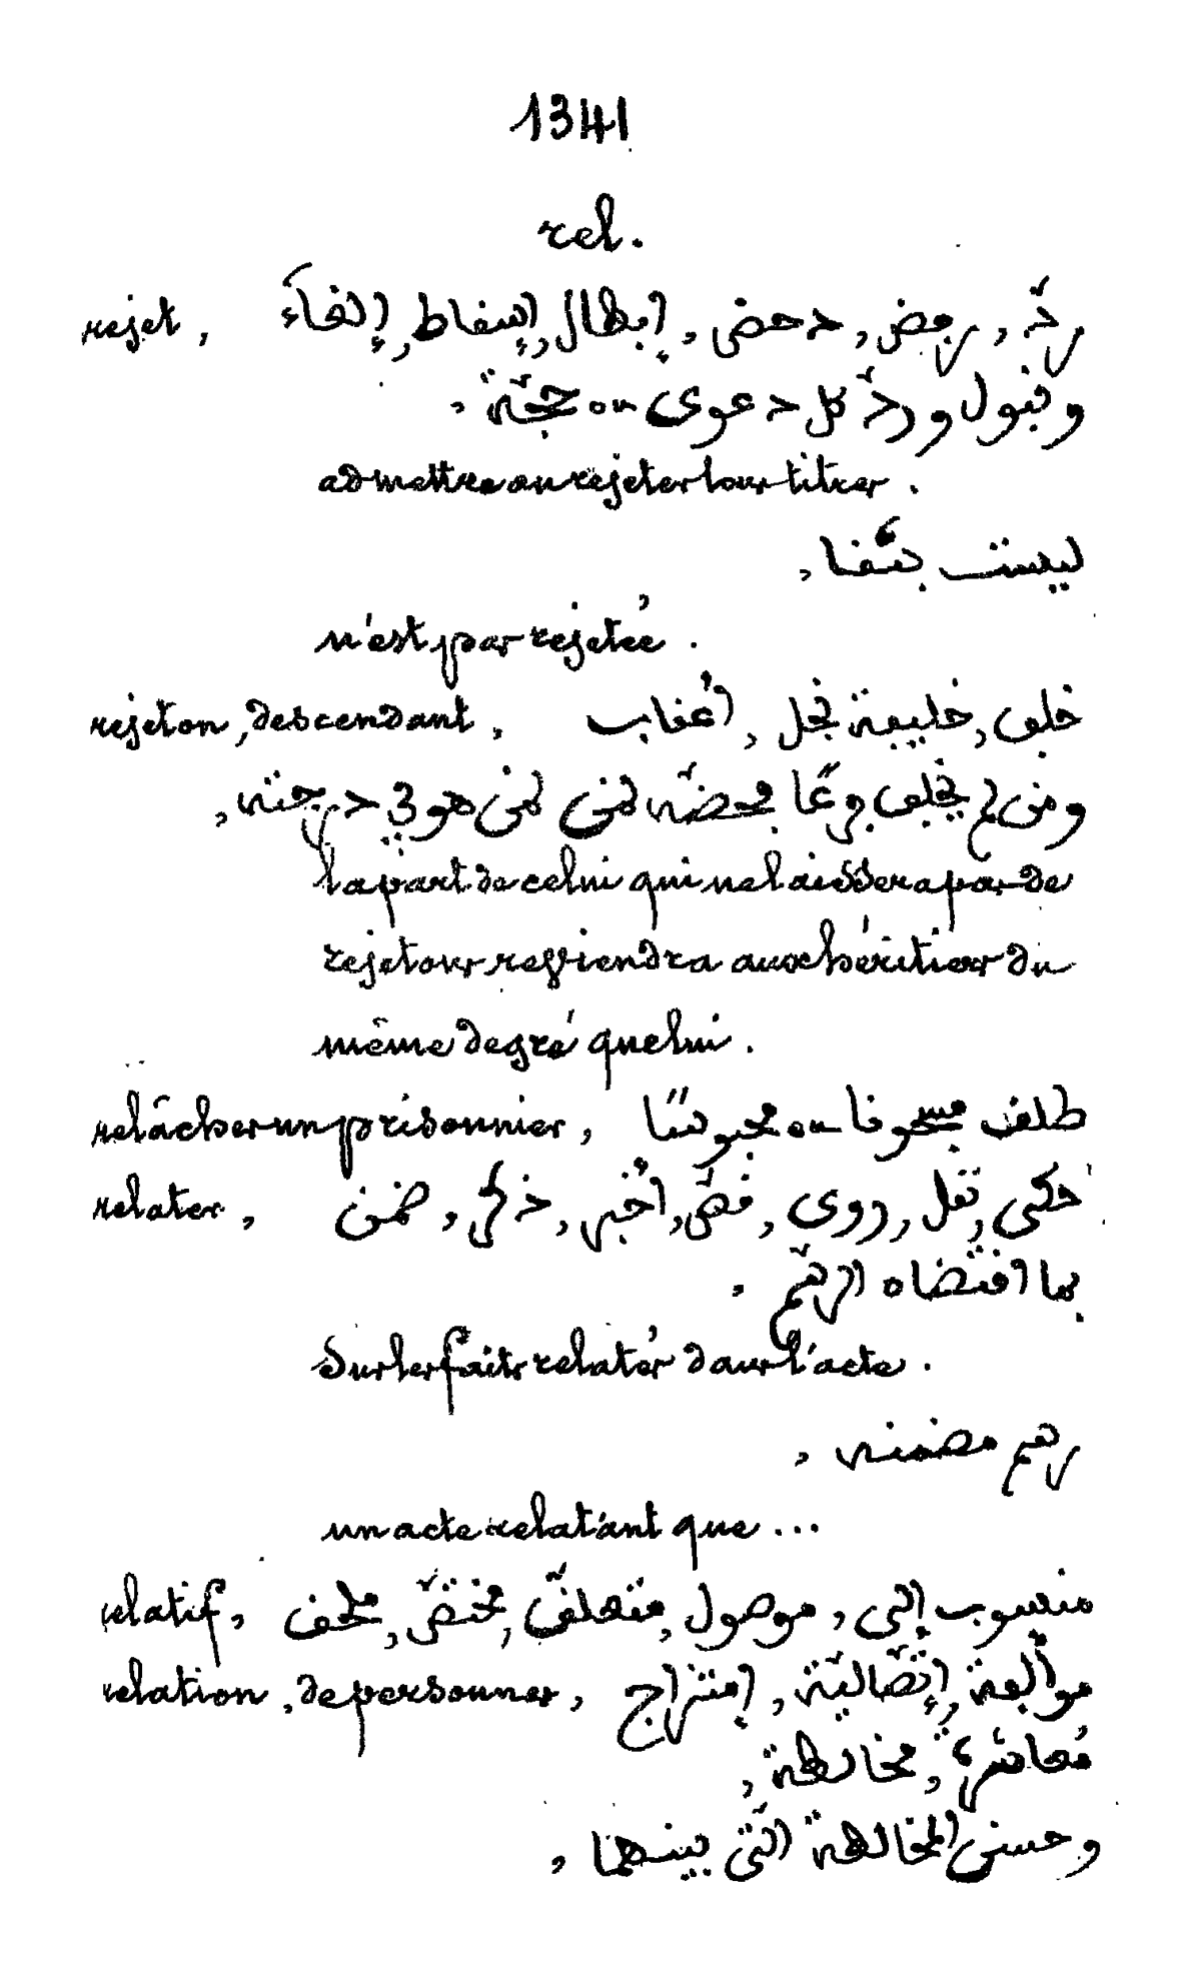 1341
rel.
rejet, ردّ, رفض, دحض, إبطال, إسقاط, إلغاء
وقبول وردّ كل دعوى ou حجّة,
admettre ou rejeter tous titres.
ليست
n'est pas rejetée.
rejeton, descendant, خلف, خليفة نجل, أعقاب
ومن لم يخلف فرعًا فحضّه لمن لمن هو في درجته,
la part de celui qui ne laissera pas de
rejetons reviendra aux héritiers du
même degré que lui.
relâcher un prisonnier, طلق مسجونا ou محبوسًا
relater, حكى, نقل, روى, قصّ, أخبر, ذكر, ضمن
بما اقتضاه الرسم,
sur les faits relatés dans l'acte.
رسم مضمنه,
un acte relatant que...
relatif, منسوب إلى, موصول, متعلقّ, مختصّ, ملحق
relation, de personnes, موالفة, إتّصاليّة, إمتزاج
مُعاشرة, مخالطة,
وحسن المخالطة الّتي بينهما,